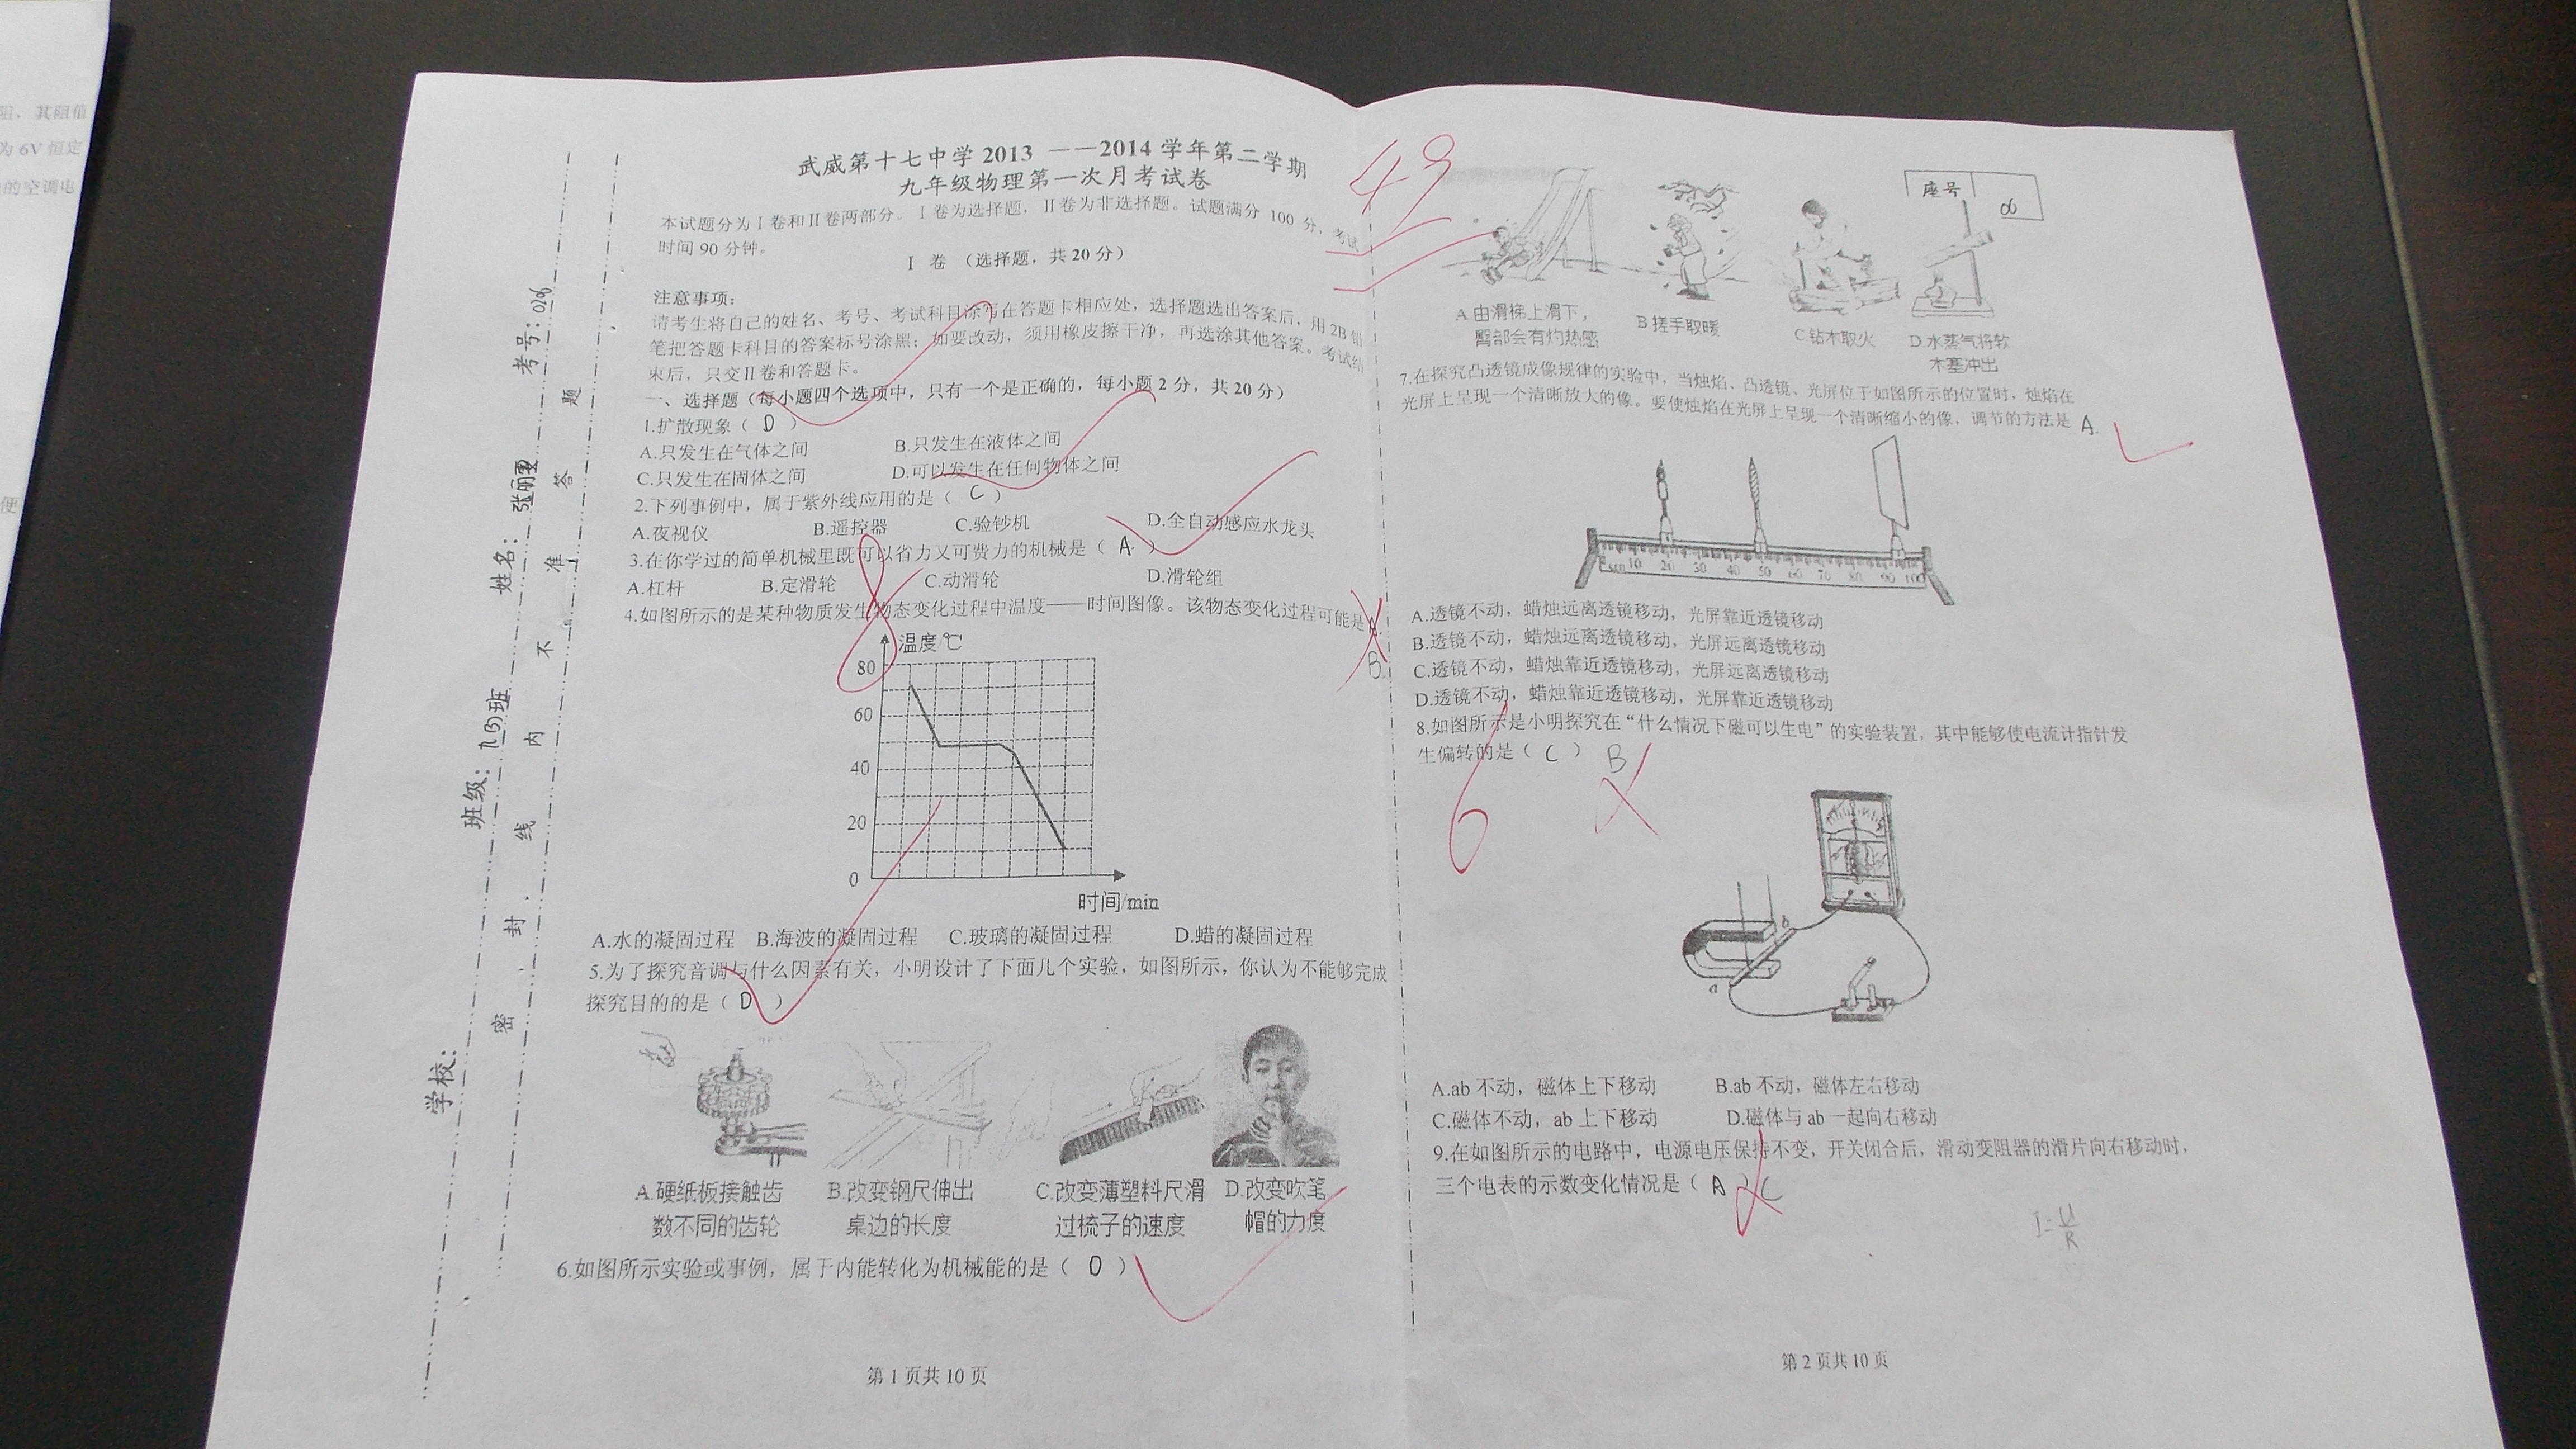 阻，其阻值
为 6V 恒定
的空调电
便
学校：
班级：九(3)班
姓名：张丽雯
考号：0296
密封线内不准答题
武威第十七中学 2013 ——2014 学年第二学期
九年级物理第一次月考试卷
49
本试题分为Ⅰ卷和Ⅱ卷两部分。Ⅰ卷为选择题，Ⅱ卷为非选择题。试题满分 100 分，考试
时间 90 分钟。
Ⅰ 卷 （选择题，共 20 分）
注意事项：
请考生将自己的姓名、考号、考试科目涂写在答题卡相应处，选择题选出答案后，用 2B 铅
笔把答题卡科目的答案标号涂黑；如要改动，须用橡皮擦干净，再选涂其他答案。考试结
束后，只交Ⅱ卷和答题卡。
一、选择题（每小题四个选项中，只有一个是正确的，每小题 2 分，共 20 分）
1.扩散现象（ D ）
A.只发生在气体之间 B.只发生在液体之间
C.只发生在固体之间 D.可以发生在任何物体之间
2.下列事例中，属于紫外线应用的是（ C ）
A.夜视仪 B.遥控器 C.验钞机 D.全自动感应水龙头
3.在你学过的简单机械里既可以省力又可费力的机械是（ A ）
A.杠杆 B.定滑轮 C.动滑轮 D.滑轮组
8
4.如图所示的是某种物质发生物态变化过程中温度——时间图像。该物态变化过程可能是
B
温度℃
80
60
40
20
0
时间/min
A.水的凝固过程 B.海波的凝固过程 C.玻璃的凝固过程 D.蜡的凝固过程
5.为了探究音调与什么因素有关，小明设计了下面几个实验，如图所示，你认为不能够完成
探究目的的是（ D ）
A.硬纸板接触齿 B.改变钢尺伸出 C.改变薄塑料尺滑 D.改变吹笔
数不同的齿轮 桌边的长度 过梳子的速度 帽的力度
6.如图所示实验或事例，属于内能转化为机械能的是（ D ）
第 1 页共 10 页
座号
A 由滑梯上滑下， B 搓手取暖 C 钻木取火 D 水蒸气将软
臀部会有灼热感 木塞冲出
7.在探究凸透镜成像规律的实验中，当烛焰、凸透镜、光屏位于如图所示的位置时，烛焰在
光屏上呈现一个清晰放大的像。要使烛焰在光屏上呈现一个清晰缩小的像，调节的方法是 A.
10 20 30 40 50 60 70 80 90 100
A.透镜不动，蜡烛远离透镜移动，光屏靠近透镜移动
B.透镜不动，蜡烛远离透镜移动，光屏远离透镜移动
C.透镜不动，蜡烛靠近透镜移动，光屏远离透镜移动
D.透镜不动，蜡烛靠近透镜移动，光屏靠近透镜移动
8.如图所示是小明探究在“什么情况下磁可以生电”的实验装置，其中能够使电流计指针发
生偏转的是（ C ） B
6
b
a
A.ab 不动，磁体上下移动 B.ab 不动，磁体左右移动
C.磁体不动，ab 上下移动 D.磁体与 ab 一起向右移动
9.在如图所示的电路中，电源电压保持不变，开关闭合后，滑动变阻器的滑片向右移动时，
三个电表的示数变化情况是（ A ） C
I=U/R
第 2 页共 10 页